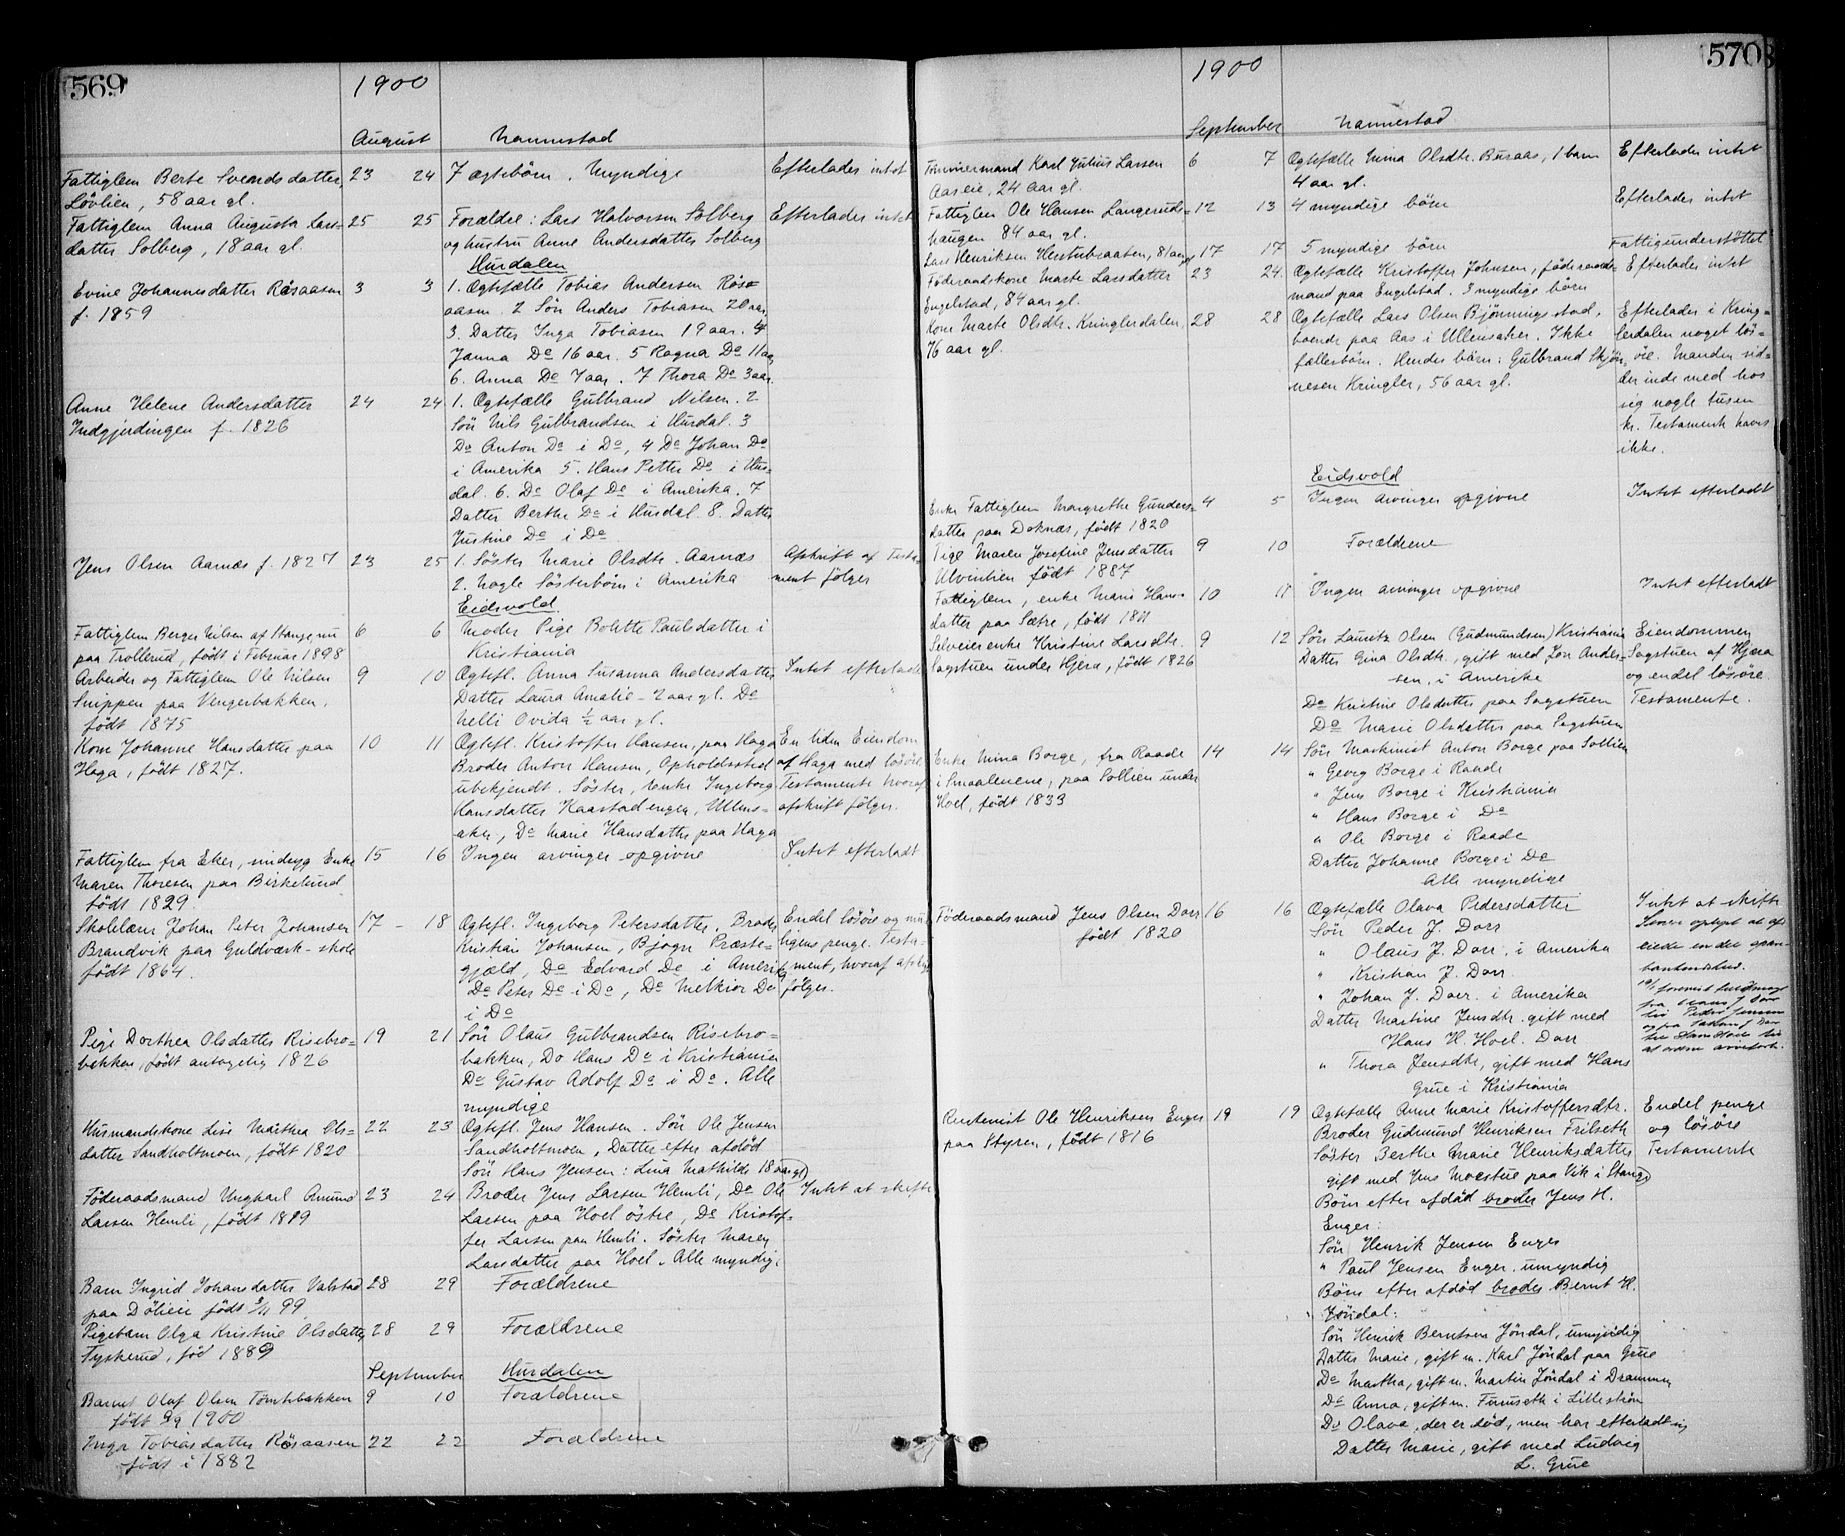 569
1900
August
Nannestad
Fattiglem Berte Svendsdatter, 23 24 7 ægtebörn. Myndige Efterlades intet
Lövlien, 58 aar gl.
Fattiglem Anna Augusta Lars= 25 25 Forældre: Lars Halvorsen Solberg Efterlades intet
datter Solberg, 18 aar gl. og hustru Anne Andersdatter Solberg
Hurdalen
Evine Johannesdatter Rösaasen 3 3 1. Ægtefælle Tobias Andersen Rös=
f. 1859 aasen. 2 Sön Anders Tobiasen 20 aar
3. Datter Inga Tobiasen 19 aar. 4
Janna Do 16 aar. 5 Ragna Do 11 aar
6. Anna Do 7 aar. 7 Thora Do 3 aar.
Anne Helene Andersdatter 24 24 1. Ægtefælle Gulbrand Nilsen. 2
Indgjerdingen f. 1826 Sön Nils Gulbrandsen i Hurdal. 3
Do Anton Do i Do, 4 Do Johan Do
i Amerika 5. Hans Petter Do i Hur=
dal. 6. Do Olaf Do i Amerika. 7
Datter Berthe Do i Hurdal. 8. Datter
Justine Do i Do
Jens Olsen Aarnæs f. 1827 23 25 1. Söster Marie Olsdtr. Aarnæs Afskrift af Testa=
2. Nogle Sösterbörn i Amerika ment fölger
Eidsvold
Fattiglem Berger Nilsen af Stange, nu 6 6 Moder Pige Bolette Paulsdatter i
paa Trollerud, født i Februar 1898 Kristiania
Arbeider og Fattiglem Ole Nilsen 9 10 Ægtef. Anna Susanna Andersdatter Intet efterladt
Snippen paa Vengerbakken, Datter Laura Amalie - 2 aar gl. Do
født 1875 Nelli Ovida ½ aar gl.
Kone Johanne Hansdatter paa 10 11 Ægtef. Kristoffer Hansen, paa Haga En liden Eiendom
Haga, født 1827. Broder Anton Hansen, Opholdssted af Haga med lösöre
ubekjendt. Söster, Enke Ingeborg Testamente hvoraf
Hansdatter Haastadengen, Ullens= afskrift fölger.
aker, Do Marie Hansdatter paa Haga
Fattiglem fra Eker, indsyg Enke 15 16 Ingen arvinger opgivne Intet efterladt
Maren Thoresen paa Birkelund
født 1829.
Skolelærer Johan Peter Johansen 17 - 18 Ægtef. Ingeborg Petersdatter, Broder Endel lösöre og mu
Brandvik paa Guldværk-skole Kristian Johansen, Bjogn Præste= ligens penge. Testa=
født 1864. gjæld, Do Edvard Do i Amerika ment, hvoraf afskr.
Do Peter Do i Do, Do Melkior Do fölger.
i Do
Pige Dorthea Olsdatter Risebro= 19 21 Sön Olaus Gulbrandsen Risebro=
bakken, født antagelig 1826 bakken, Do Hans Do i Kristiania
Do Gustav Adolf Do i Do. Alle
myndige
Husmandskone Lise Marthea Ols= 22 23 Ægtef. Jens Hansen. Sön Ole Jensen
datter Sandholtmoen, født 1820 Sandholtmoen, Datter efter afdöd
Sön Hans Jensen: Lina Mathilde 18 aar gl
Föderaadsmand Ungkarl Amund 23 24 Broder Jens Larsen Hemli, Do Ole Intet at skifte
Larsen Hemli, født 1819 Larsen paa Hoel östre, Do Kristof=
fer Larsen paa Hemli. Söster Maren
Larsdatter paa Hoel. Alle myndig.
Barn Ingrid Johansdatter Valstad 28 29 Forældrene
paa Dölieie født 3/11 99
Pigebarn Olga Kristine Olsdatter 28 29 Forældrene
Tyskerud, föd 1889
September
Hurdalen
Barnet Oluf Olsen Tömtebakken 9 10 Forældrene
født 2/9 1900
Inga Tobiasdatter Rösaasen 22 22 Forældrene
født i 1882
570
1900
September
Nannestad
Tömmermand Karl Julius Larsen 6 7 Ægtefælle Mina Olsdtr. Buraas, 1 barn Efterlades intet
Aaseie, 24 aar gl. 4 aar gl.
Fattiglem Ole Hansen Langerud= 12 13 4 myndige börn Efterlades intet
haugen 84 aar gl.
Lars Henriksen Herstubraaten, 81 aar gl 17 17 5 myndige börn Fattigunderstöttet
Föderaadskone Marte Larsdatter 23 24. Ægtefælle Kristoffer Johnsen, föderaads= Efterlades intet
Engelstad, 84 aar gl. mand paa Engelstad. 3 myndige börn
Kone Marte Olsdtr. Kringlerdalen, 28 28 Ægtefælle Lars Olsen Bjönningsstad, Efterlades i Kring=
76 aar gl. boende paa Aas i Ullensaker. Ikke lerdalen noget lös=
fællesbörn. Hendes börn: Gulbrand Skjön öre. Manden sid=
nesen Kringler, 56 aar gl. der inde med hos
sig nogle tusen
kr. Testament haves
ikke.
Eidsvold
Enke Fattiglem Margrethe Gunders= 4 5 Ingen arvinger opgivne Intet efterladt
datter paa Doknæs, født 1820
Pige Maren Josefine Jensdatter 9 10 Forældrene
Ulvinlien født 1887
Fattiglem, enke Marie Hans= 10 11 Ingen arvinger opgivne Intet efterladt
datter paa Sætre, født 1811
Selveierenke Kristine Larsdtr. 9 12 Sön Lauritz Olsen (Gudmundsen) Kristiania Eiendommen
Sagstuen under Hjera, født 1826 Datter Gina Olsdtr, gift med Jon Ander= Sagstuen af Hjæra
sen, i Amerika og endel lösöre.
Do Kristine Olsdatter paa Sagstuen Testamente.
Do Marie Olsdatter paa Sagstuen
Enke Mina Borge, fra Raade 14 14 Sön Maskinist Anton Borge paa Sollien
i Smaalenene, paa Sollien under " Georg Borge i Raade
Hoel, født 1833 " Jens Borge i Kristiania
" Hans Borge i Do
" Ole Borge i Raade
Datter Johanne Borge i Do
Alle myndige
Föderaadsmand Jens Olsen Dorr 16 16 Ægtefælle Olava Pedersdatter Intet at skifte
født 1820 Sön Peder J. Dorr
" Olaus J. Dorr, i Amerika
" Kristian J. Dorr
" Johan J. Dorr. i Amerika
Datter Martine Jensdtr. gift med
Hans H. Hoel. Dorr
" Thora Jensdtr, gift med Hans
Grue i Kristiania
Rentenist Ole Henriksen Enger 19 19 Ægtefælle Anne Marie Kristoffersdtr. Endel penge
paa Styren, født 1816 Broder Gudmund Henriksen Frilseth og lösöre
Söster Berthe Marie Henriksdatter Testamente
gift med Jens Moestue paa Vik i Stange
Börn efter afdöd broder Jens H.
Enger:
Sön Henrik Jensen Enger
" Paul Jensen Enger. umyndig
Börn efter afdöd broder Bernt H.
Jöndal:
Sön Henrik Berntsen Jöndal, umyndig
Datter Marie, gift m. Karl Jöndal paa Grue
Do Martha, gift m. Martin Jöndal i Drammen
Do Anna, gift m. Furuseth i Lilleström
Do Olava, der er död, men har efterladt sig
Datter Marie, gift med Ludvig
L. Grue